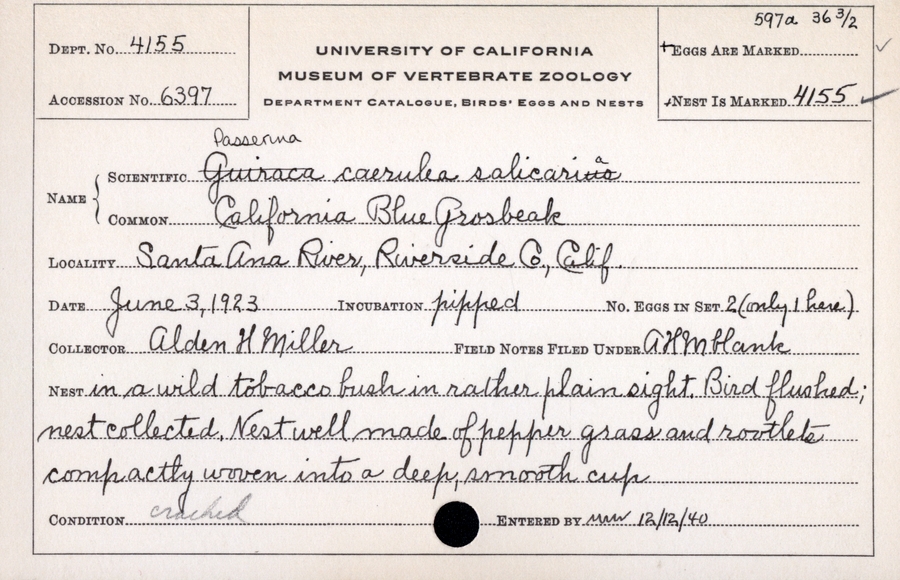 597a 36 3/2
DEPT. NO. 4155
UNIVERSITY OF CALIFORNIA
EGGS ARE MARKED
MUSEUM OF VERTEBRATE ZOOLOGY
ACCESSION NO. 6397
DEPARTMENT CATALOGUE, BIRDS' EGGS AND NESTS
NEST IS MARKED 4155
Passerina
NAME
SCIENTIFIC Guiraca caerulea salicaria
COMMON California Blue Grosbeak
LOCALITY Santa Ana River, Riverside Co., Calif.
DATE June 3, 1923 INCUBATION pipped NO. EGGS IN SET 2 (only 1 here)
COLLECTOR Alden H Miller FIELD NOTES FILED UNDER AHM blank
NEST in a wild tobacco bush in rather plain sight. Bird flushed;
nest collected. Nest well made of pepper grass and rootlets
compactly woven into a deep, smooth cup
CONDITION cracked ENTERED BY 12/12/40